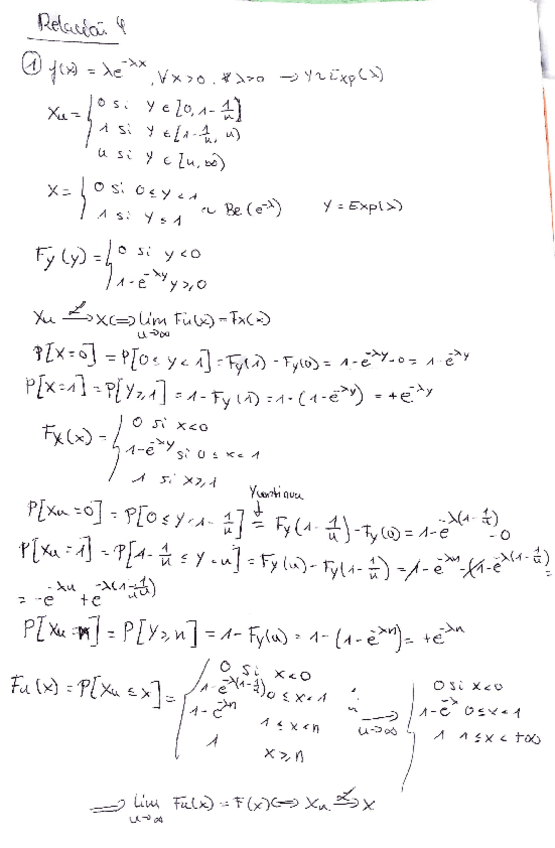 Relación 4
① f(x) = λe^{-λx}, ∀x>0. λ>0 → Y~Exp(λ)
Xn = { 0 si Y ∈ [0, 1-1/n]
1 si Y ∈ [1-1/n, n)
n si Y ∈ [n, ∞)
X = { 0 si 0 ≤ Y < 1
1 si Y ≥ 1 ~ Be(e^{-λ}) Y = Exp(λ)
Fy(y) = { 0 si y<0
1-e^{-λy} y≥0
Xn →^L X ⟺ lim_{n→∞} Fn(x) = Fx(x)
P[X=0] = P[0≤y<1] = Fy(1) - Fy(0) = 1-e^{-λy} - 0 = 1-e^{-λy}
P[X=1] = P[Y≥1] = 1 - Fy(1) = 1-(1-e^{-λy}) = +e^{-λy}
Fx(x) = { 0 si x<0
1-e^{-λy} si 0≤x<1
1 si x≥1
Y continua
P[Xn=0] = P[0≤y<1-1/n] = Fy(1-1/n) - Fy(0) = 1-e^{-λ(1-1/n)} - 0
P[Xn=1] = P[1-1/n ≤ y < n] = Fy(n) - Fy(1-1/n) = 1-e^{-λn} - (1-e^{-λ(1-1/n)}) =
= -e^{-λn} + e^{-λ(1-1/n)}
P[Xn=n] = P[Y≥n] = 1 - Fy(n) = 1-(1-e^{-λn}) = +e^{-λn}
Fn(x) = P[Xn ≤ x] = { 0 si x<0
1-e^{-λ(1-1/n)} 0≤x<1
1-e^{-λn} 1≤x<n
1 x≥n
→_{n→∞} { 0 si x<0
1-e^{-λ} 0≤x<1
1 1≤x<+∞
⟹ lim_{n→∞} Fn(x) = F(x) ⟺ Xn →^L X